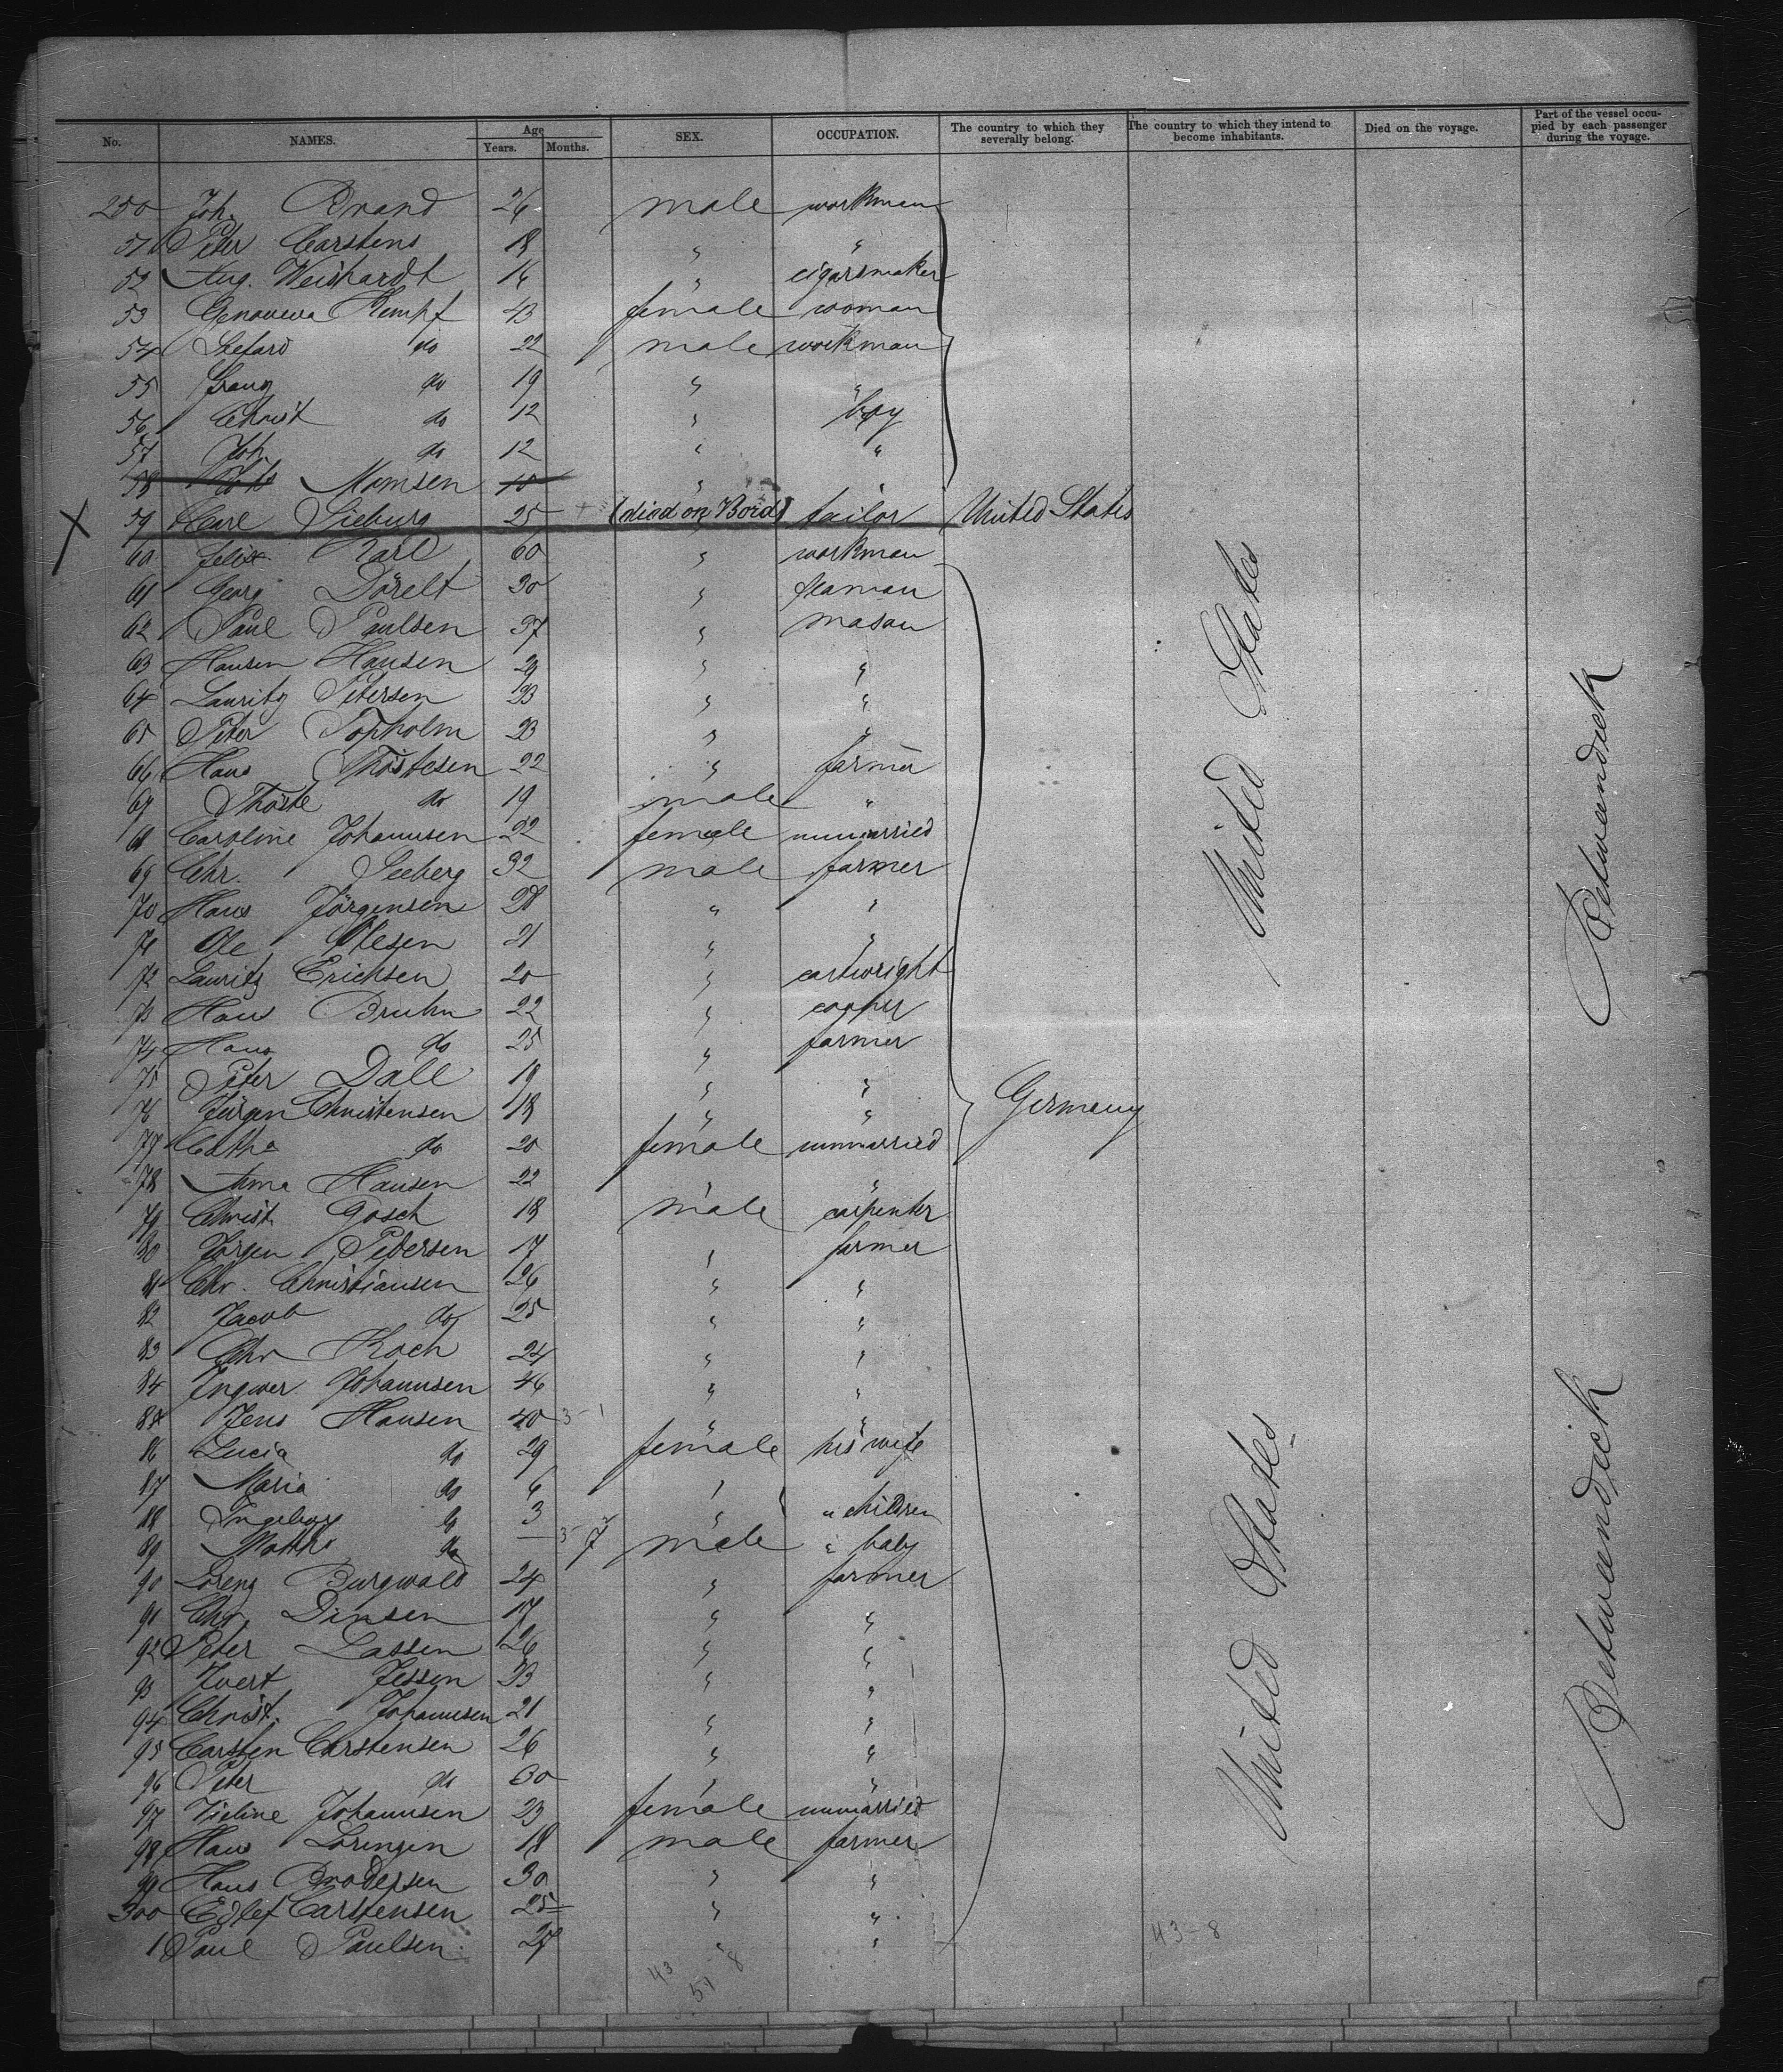 No. NAMES. Age Years. Months. SEX. OCCUPATION. The country to which they severally belong. The country to which they intend to become inhabitants. Died on the voyage. Part of the vessel occupied by each passenger during the voyage.
250 Joh. Brand 26 male workman
51 Peter Carstens 18 " "
52 Aug. Weishardt 16 " cigarsmaker
53 Genoveva Kempf 43 female woman
54 Stefard do 22 male workman
55 Franz do 19 " "
56 Christ do 12 " boy
57 Joh. do 12 " "
58 Momsen 10 " "
59 Carl Sieburg 25 (died on Bord) tailor United States
60 Felix Karl 60 " workman
61 Georg Dörelt 30 " seaman
62 Paul Paulsen 37 " mason
63 Hansen Hansen 29 " "
64 Lauritz Petersen 23 " "
65 Peter Topholm 23 " "
66 Hans Thöstesen 22 " farmer
67 Thöste do 19 male "
68 Caroline Johannsen 22 female unmarried
69 Chr. Seeberg 32 male farmer
70 Hans Jörgensen 28 " "
71 Ole Olesen 21 " "
72 Lauritz Erichsen 20 " cartwright
73 Hans Bruhn 22 " cooper
74 Hans do 25 " farmer
75 Peter Dall 19 " "
76 Jürgen Christensen 18 " " Germany
77 Cath. do 20 female unmarried
78 Anna Hansen 22 " "
79 Christ. Gosch 18 male carpenter
80 Jörgen Petersen 17 " farmer
81 Chr. Christiansen 26 " "
82 Jacob do 25 " "
83 Chr Koch 24 " "
84 Ingwer Johannsen 46 " "
85 Jens Hansen 40 3-1 " "
86 Lucia do 29 female his wife
87 Maria do 6 "
88 Ingeborg do 3 " " children
89 Matths do — 7 male " baby
90 Lorenz Burgwald 24 " farmer
91 Chr. Dinsen 17 " "
92 Peter Lassen 26 " "
93 Ivert Jessen 23 " "
94 Christ. Johannsen 21 " "
95 Carsten Carstensen 26 " "
96 Peter do 30 " "
97 Vieline Johannsen 23 female unmarried
98 Hans Lorenzen 18 male farmer
99 Hans Brodersen 30 " "
300 Edlef Carstensen 25 " "
1 Paul Paulsen 27 " "
United States
Betweendeck
United States
Betweendeck
43-8
43
51 8